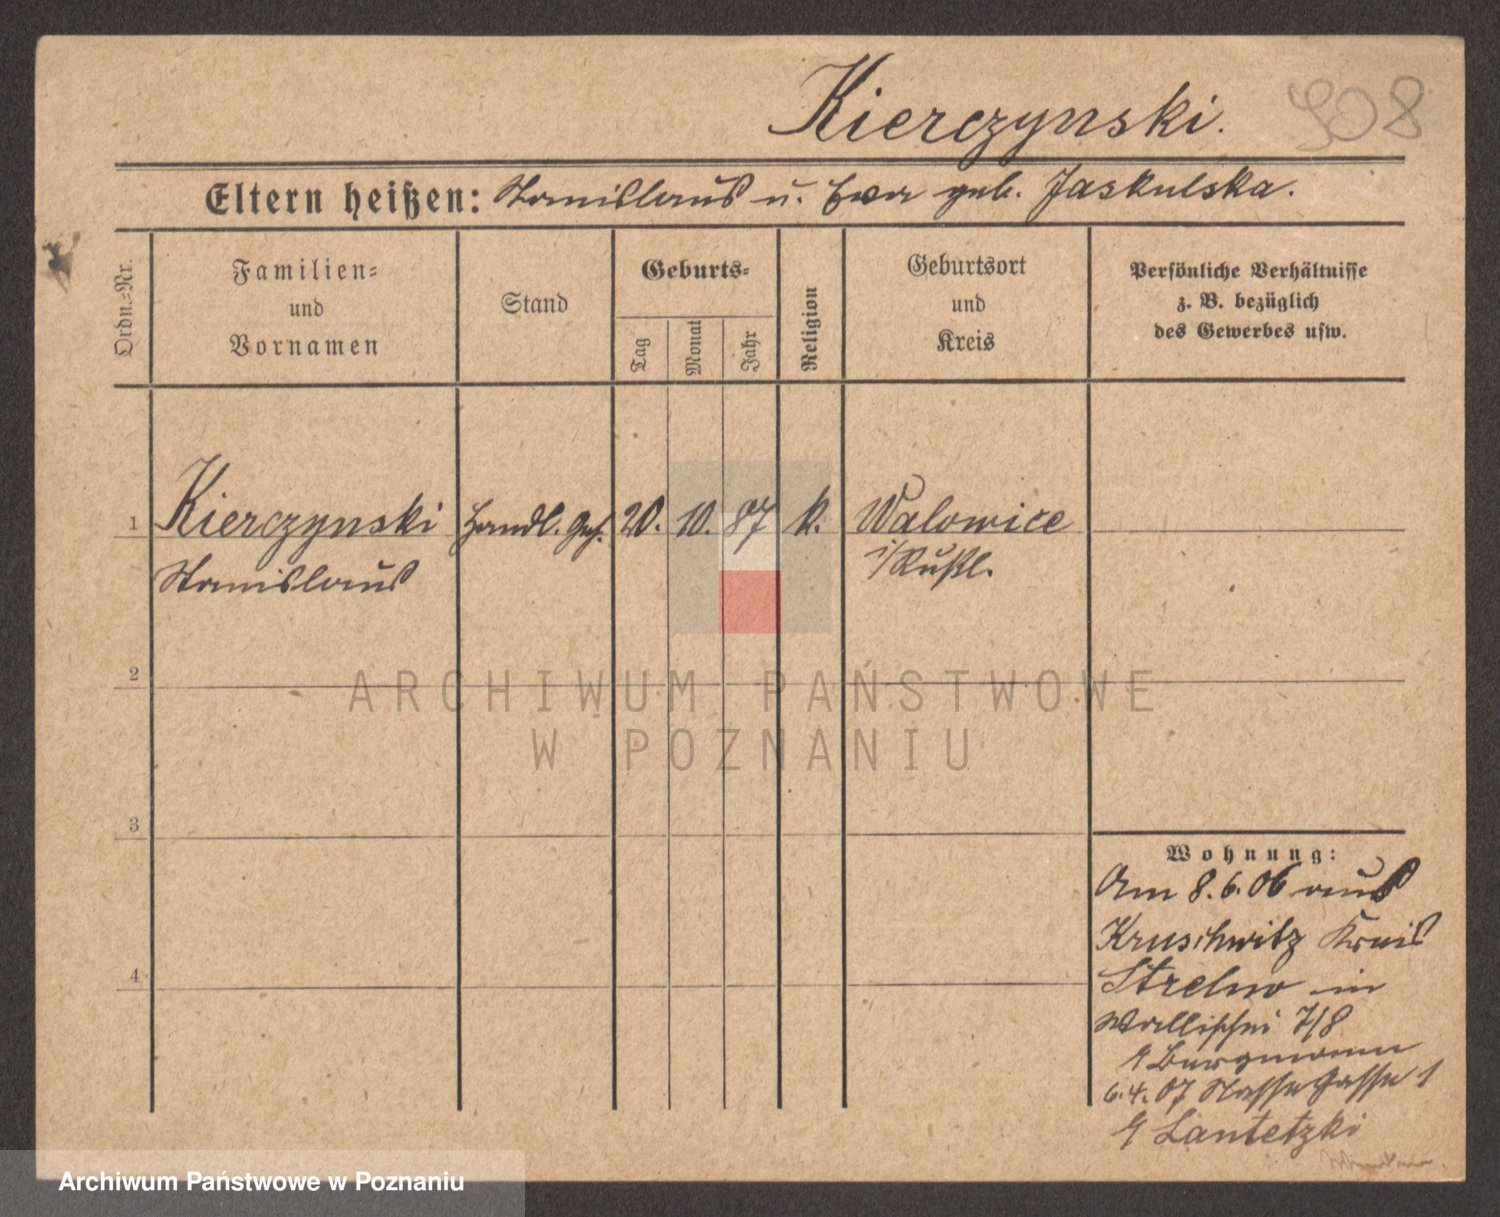 Kierczynski.
908
Eltern heißen: Stanislaus u. Ewa geb. Jaskulska.
Ordn.-Nr.
Familien-
und
Vornamen
Stand
Geburts-
Tag
Monat
Jahr
Religion
Geburtsort
und
Kreis
Persönliche Verhältnisse
z. B. bezüglich
des Gewerbes usw.
1 Kierczynski Handl. Geh. 20. 10. 87 k. Walowice
Stanislaus i/Rußl.
2
3
4
Wohnung:
Am 8.6.06 aus
Kruschwitz Kreis
Strelno in
Wallischei 7/8
Burgmann
6.4.07 Nasse Gasse 1
Lantetzki
ARCHIWUM PAŃSTWOWE
W POZNANIU
Archiwum Państwowe w Poznaniu